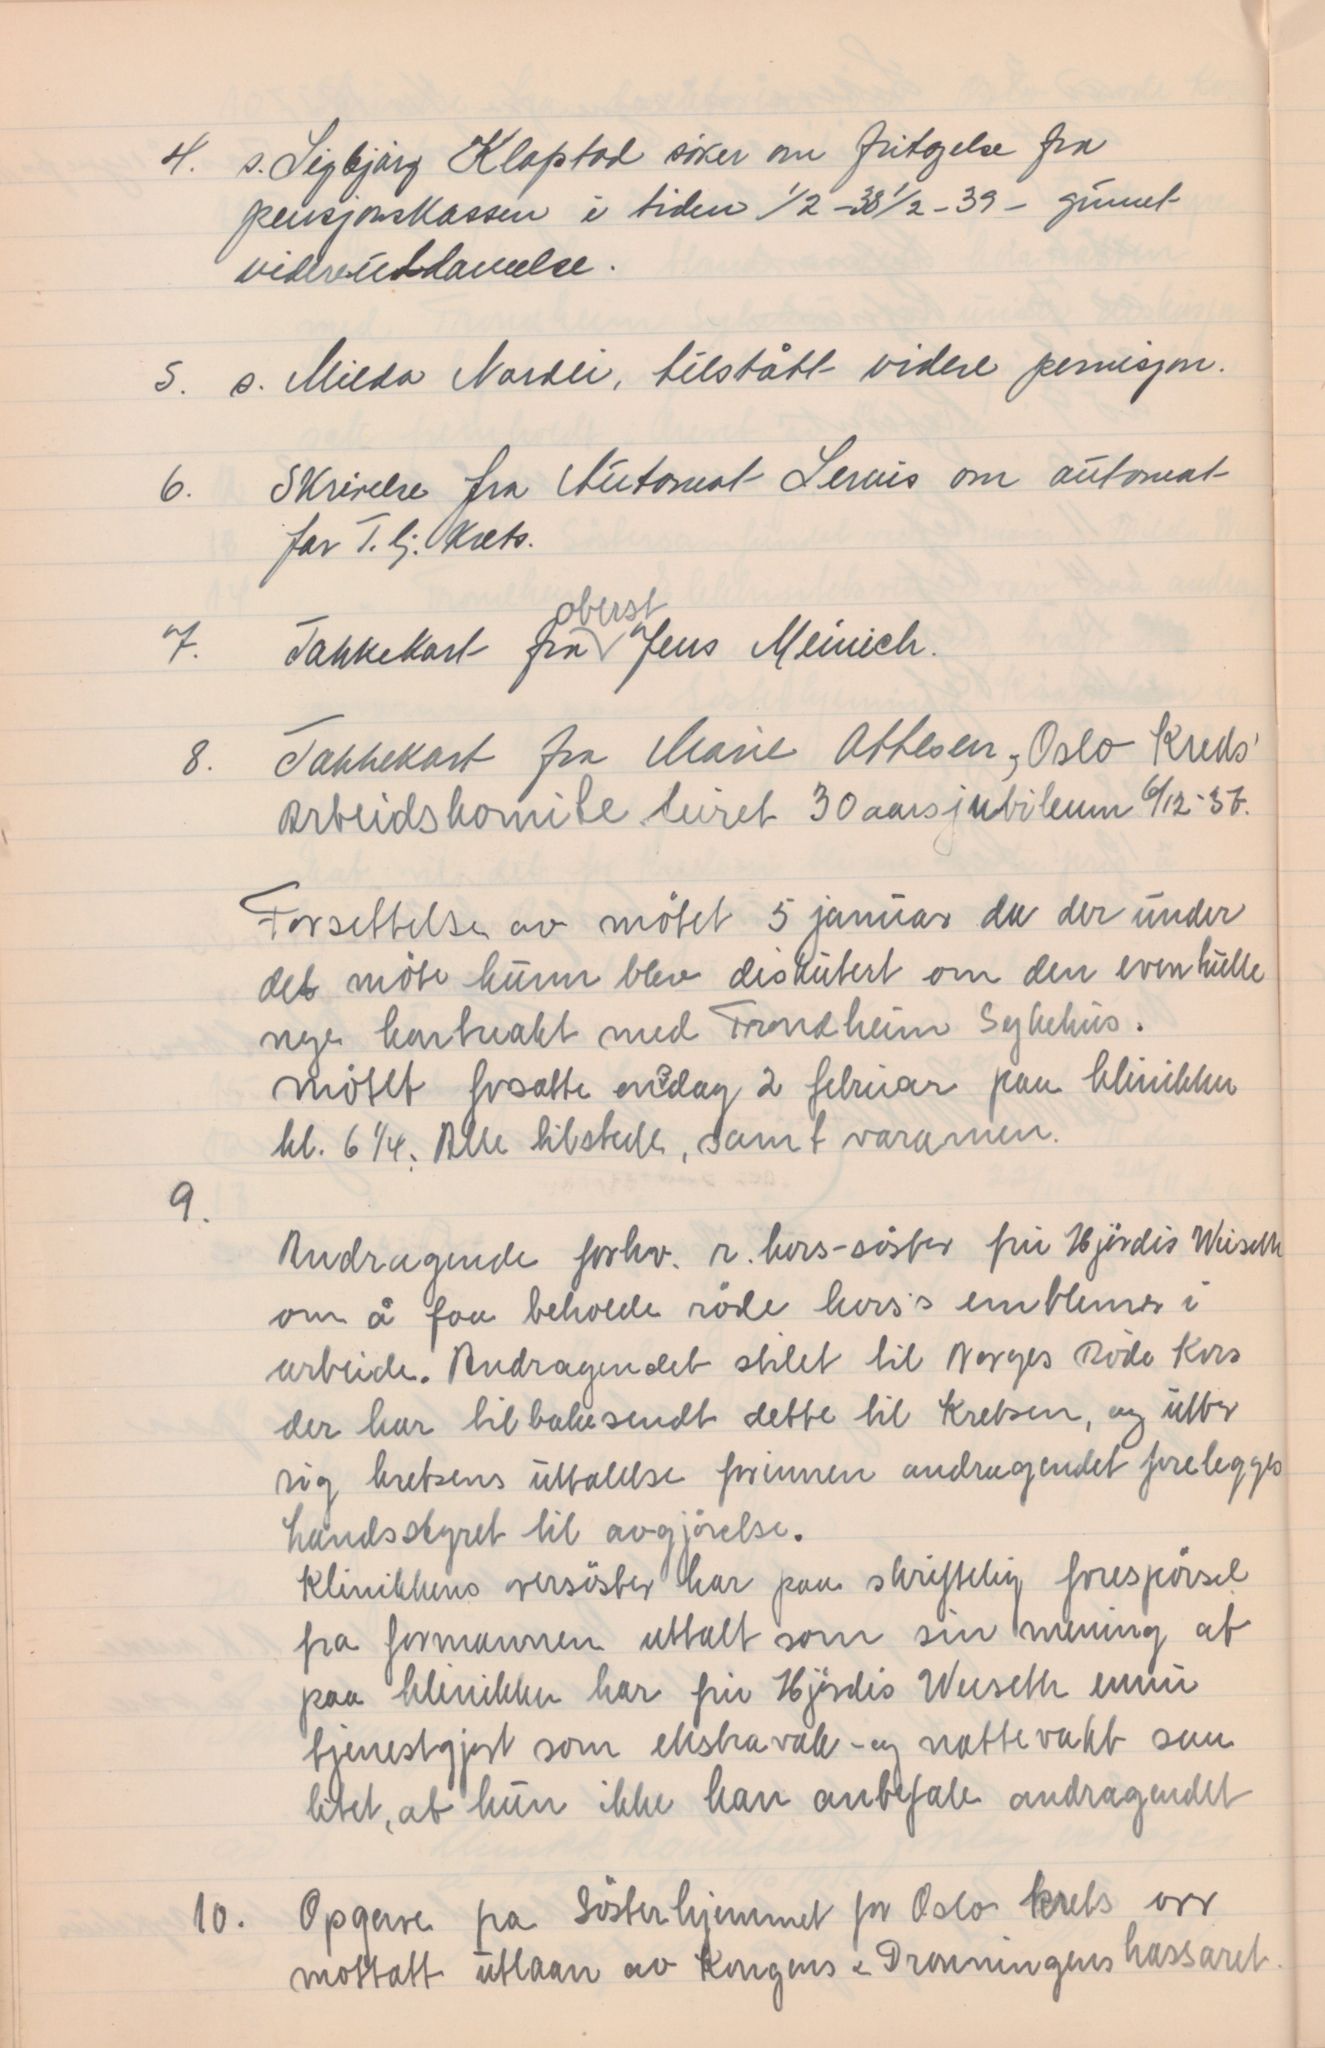 4. s. Sigbjørg Klopstad søker om fritagelse fra
pensjonskassen i tiden 1/2-38 1/2-39 - grunnet
videreutdannelse.
5. s. Milda Nordli, tilstått videre permisjon.
6. Skrivelse fra Automat Servis om automat
for T. Hj. Krets.
7. Takkekort fra oberst Jens Meinich.
8. Takkekort fra Marie Ottesen, Oslo Kreds'
Arbeidskomite leiret 30 aars jubileum 6/12-37.
Forsettelse av mötet 5 januar da der under
det möte kunn blev diskutert om den eventuelle
nye kontrakt med Trondheim Sykehus.
mötet fosatte onsdag 2 februar paa klinikken
kl. 6 1/4. Alle tilstede, samt varamen.
9.
Andragende forhv. r. kors-söster fru Hjördis Weiseth
om å faa beholde röde kors's emblemer i
arbeide. Andragendet stilet til Norges Röde Kors
der har tilbakesendt dette til Kretsen, og utber
sig kretsens uttalelse forinnen andragendet forelegges
handsstyret til avgjörelse.
Klinikkens oversöster har paa skriftelig forespörsel
fra formannen uttalt som sin mening at
paa klinikken har fru Hjördis Weiseth ennu
tjenestgjort som ekstravakt - og nattevakt saa
litet, at hun ikke kan anbefale andragendet
10. Opgave fra Sösterhjemmet for Oslo krets over
mottatt utlaan av Kongens & Dronningens hassaret.